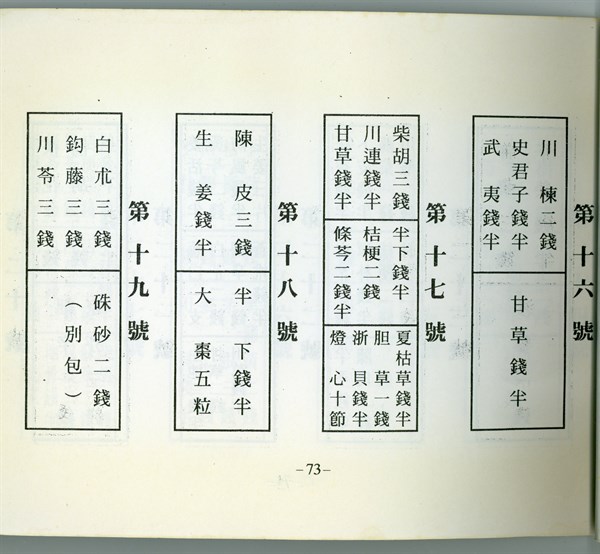 第十六號
川棟二錢
史君子錢半
武夷錢半
甘草錢半
第十七號
柴胡三錢
川連錢半
甘草錢半
半下錢半
桔梗二錢
條芩二錢半
夏枯草錢半
胆草一錢
浙貝錢半
燈心十節
第十八號
陳皮三錢
生姜錢半
半下錢半
大棗五粒
第十九號
白朮三錢
鈎藤三錢
川芩三錢
硃砂二錢
（別包）
–73–